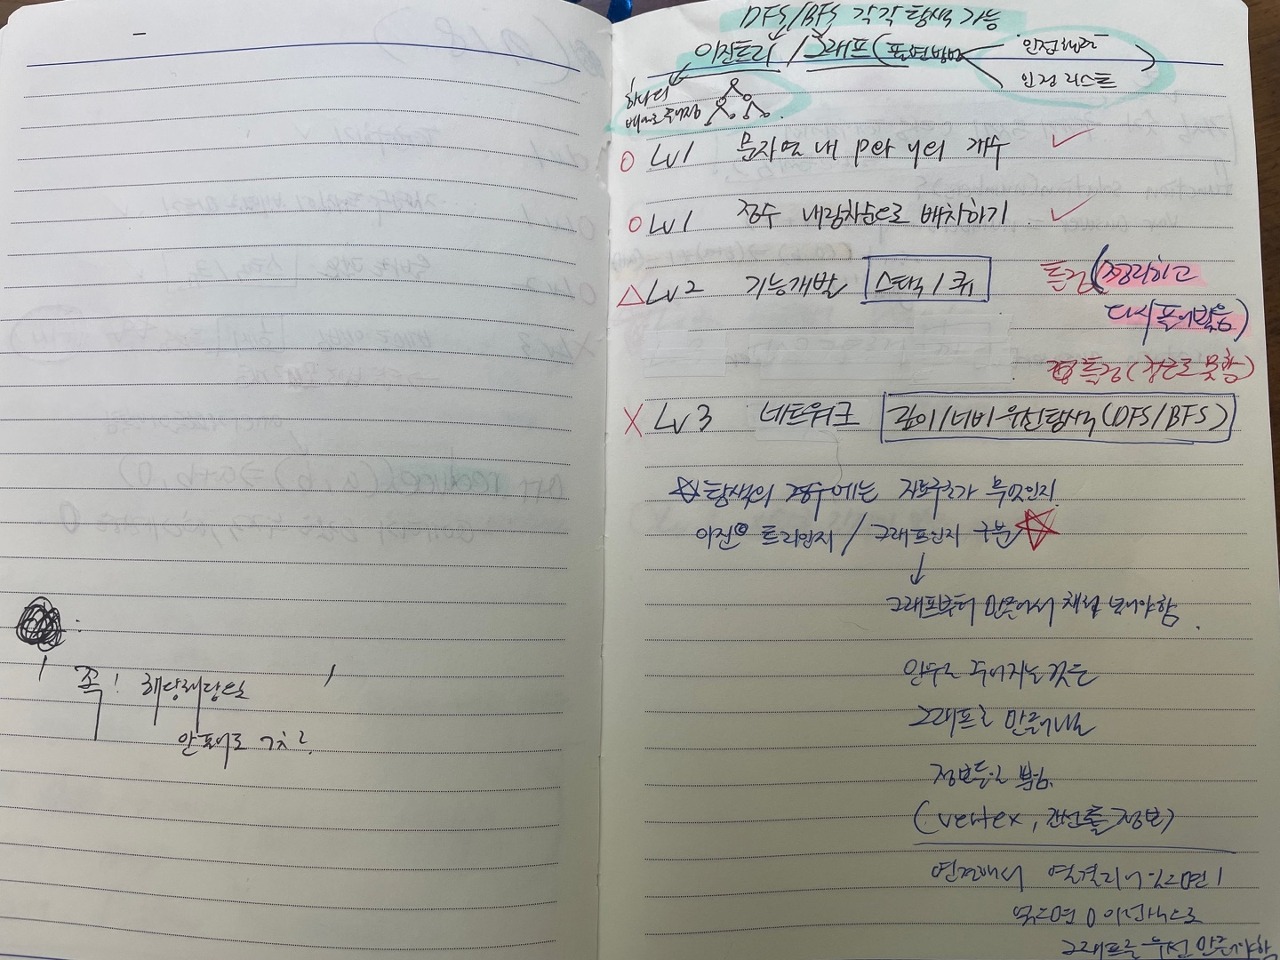 꼭! 해당해당
DFS/BFS 각각 탐색 가능
이진트리 / 그래프(표현방법
인접행렬
인접 리스트
)
하나의
배열로 저장
O Lv1 문자열 내 p와 y의 개수 ✓
O Lv1 정수 내림차순으로 배치하기 ✓
△ Lv2 기능개발 스택/큐
특징(정리하고
다시풀어봤음)
특징(접근도 못함)
X Lv3 네트워크 깊이/너비 우선탐색(DFS/BFS)
☆ 탐색의 경우에는 자료구조가 무엇인지
이진 트리인지 / 그래프인지 구분 ☆
↓
그래프부터 만들어서 해야함.
인수로 주어지는것은
그래프로 만들어낼
정보들로 봄.
(vertex, 간선들 정보)
연결해서 연결되어있으면 1
없으면 0 이런식으로
그래프를 우선 만들어야함